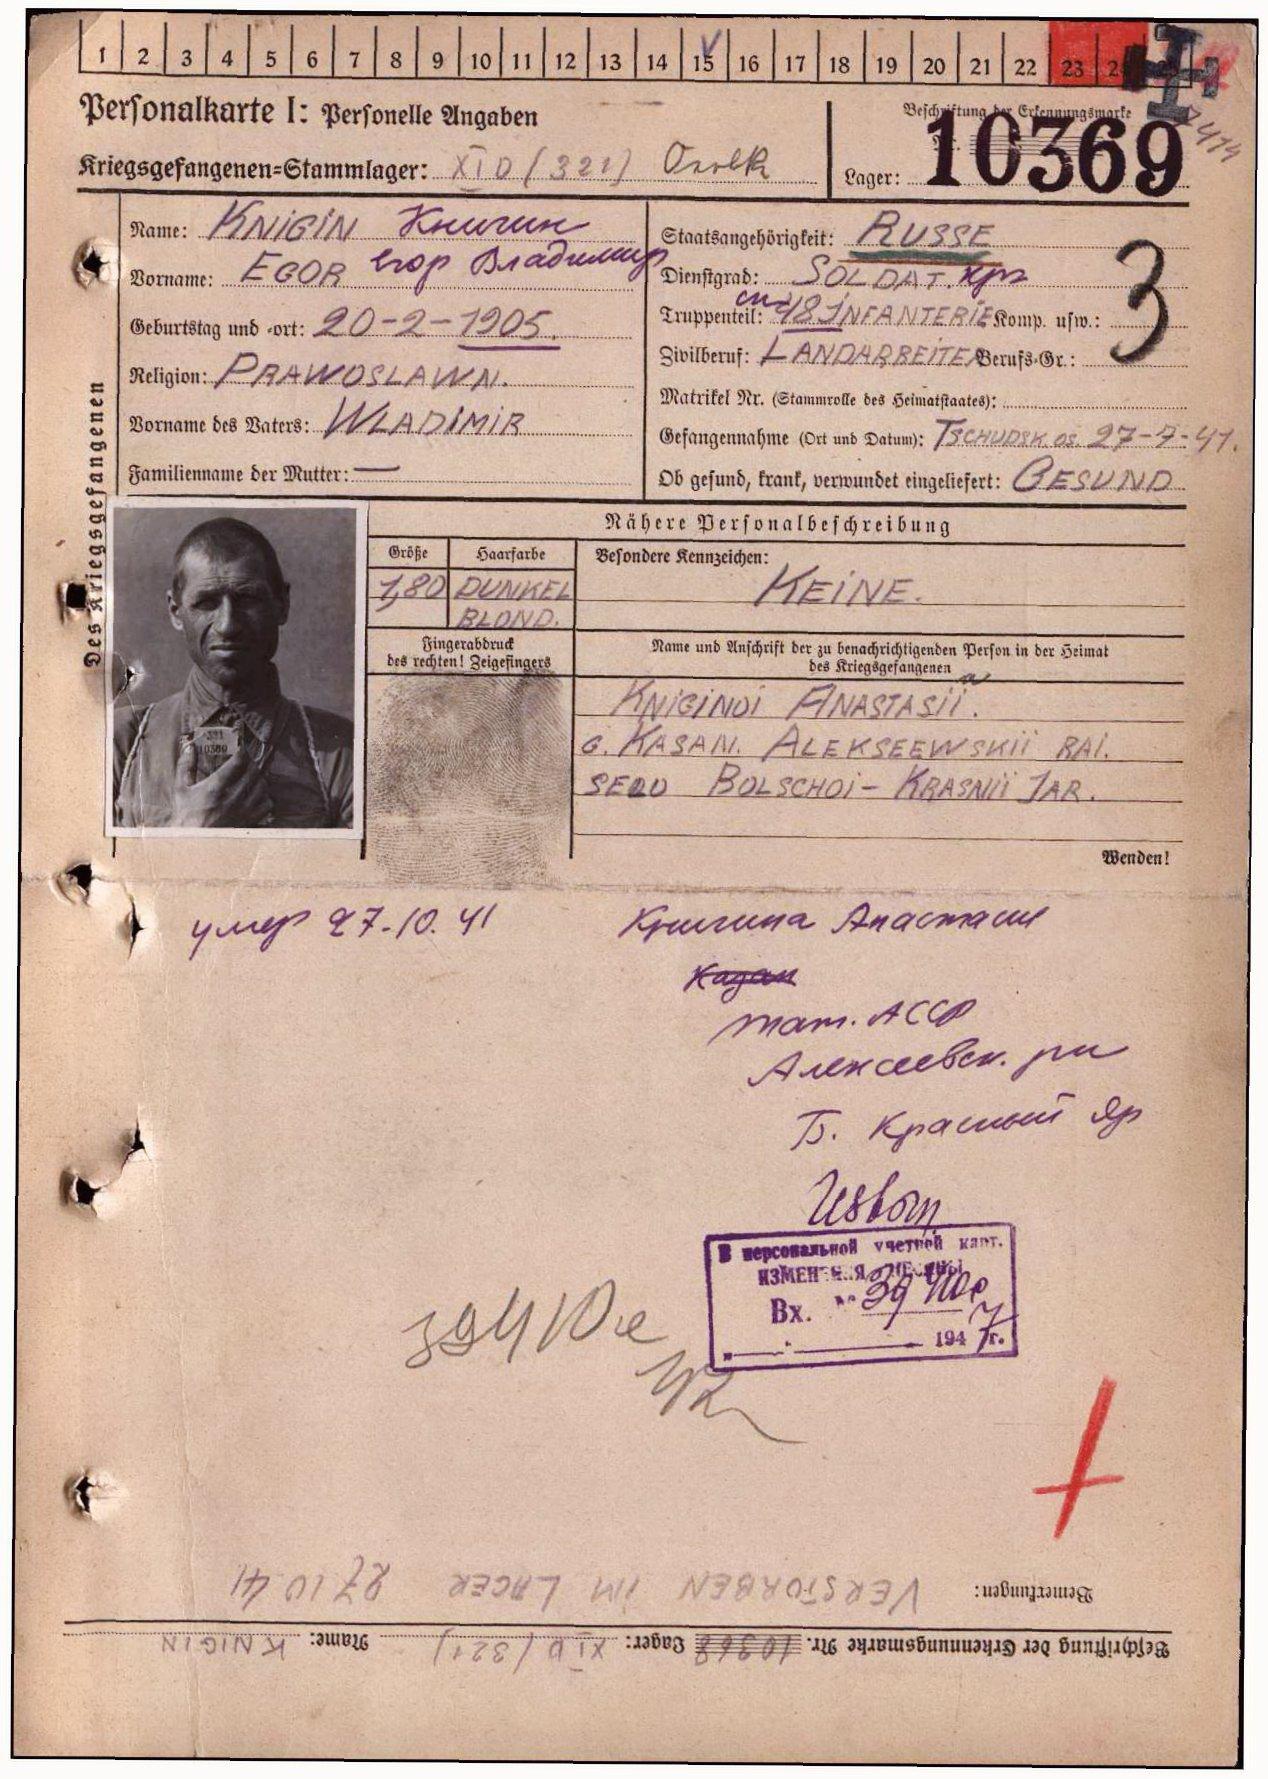 1 2 3 4 5 6 7 8 9 10 11 12 13 14 15 16 17 18 19 20 21 22 23 24
Personalkarte I: Personelle Angaben
Beschriftung der Erkennungsmarke
Kriegsgefangenen-Stammlager: XI D (321)
Lager: 10369
Des Kriegsgefangenen
Name: KNIGIN Книгин
Vorname: EGOR Егор Владимир
Geburtstag und -ort: 20-2-1905.
Religion: PRAWOSLAWN.
Vorname des Vaters: WLADIMIR
Familienname der Mutter: —
Staatsangehörigkeit: RUSSE
Dienstgrad: SOLDAT. кр-ц
Truppenteil: сп 48 INFANTERIE Komp. usw.:
3
Zivilberuf: LANDARBEITER Berufs-Gr.:
Matrikel Nr. (Stammrolle des Heimatstaates):
Gefangennahme (Ort und Datum): TSCHUDSK OS. 27-7-41.
Ob gesund, krank, verwundet eingeliefert: GESUND
Nähere Personalbeschreibung
Größe Haarfarbe Besondere Kennzeichen:
1,80 DUNKEL BLOND. KEINE.
Fingerabdruck
des rechten! Zeigefingers
Name und Anschrift der zu benachrichtigenden Person in der Heimat
des Kriegsgefangenen
KNIGINOI ANASTASII.
G. KASAN. ALEKSEEWSKII RAI.
SELO BOLSCHOI-KRASNII JAR.
321
10369
Wenden!
умер 27.10.41
Книгина Анастасия
Казан
тат. АССР
Алексеевск. рн
Б. Красный Яр
В персональной учетной карт.
ИЗМЕНЕНИЯ ВНЕСЕНЫ
Вх. № 39410с
1947г.
39410с
Bemerkungen: VERSTORBEN IM LAGER 27 10 41
Beschriftung der Erkennungsmarke Nr. 10369 Lager: XI D (321) Name: KNIGIN